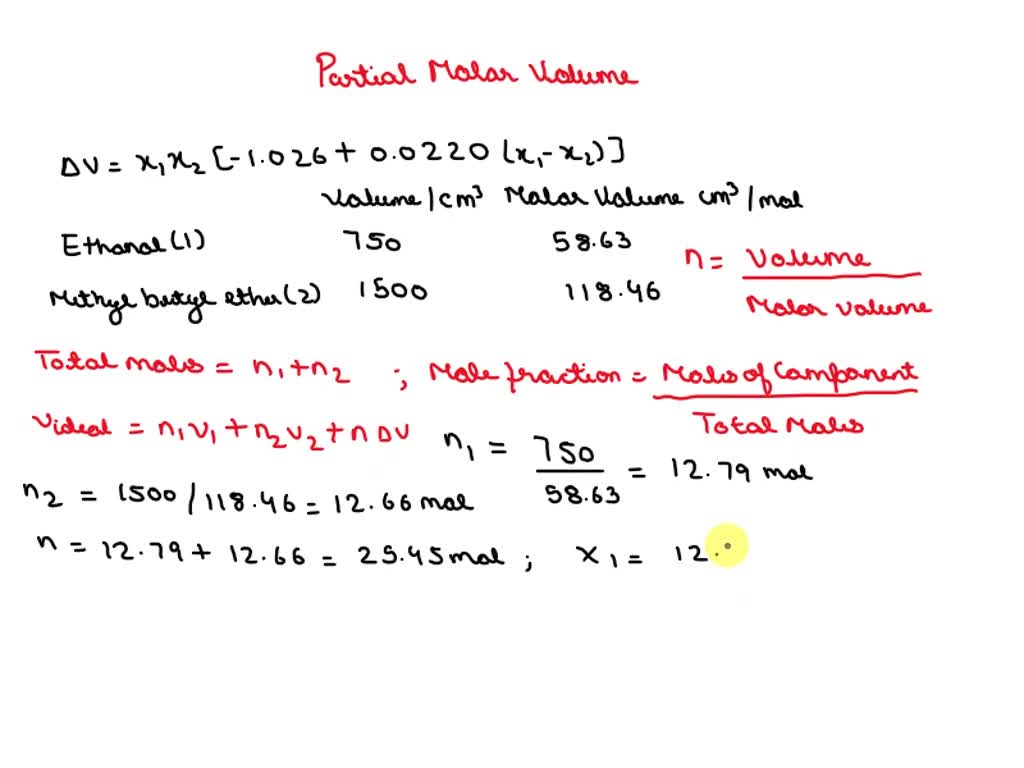 Partial Molar Volume
ΔV = x₁x₂ [-1.026 + 0.0220 (x₁-x₂)]
Volume/cm³ Molar Volume cm³/mol
Ethanol (1) 750 58.63
n = Volume / Molar volume
Methyl butyl ether (2) 1500 118.46
Total moles = n₁+n₂ ; Mole fraction = Moles of Component / Total Moles
Videal = n₁V₁ + n₂V₂ + nΔV
n₁ = 750 / 58.63 = 12.79 mol
n₂ = 1500 / 118.46 = 12.66 mol
n = 12.79 + 12.66 = 25.45 mol ; x₁ = 12.